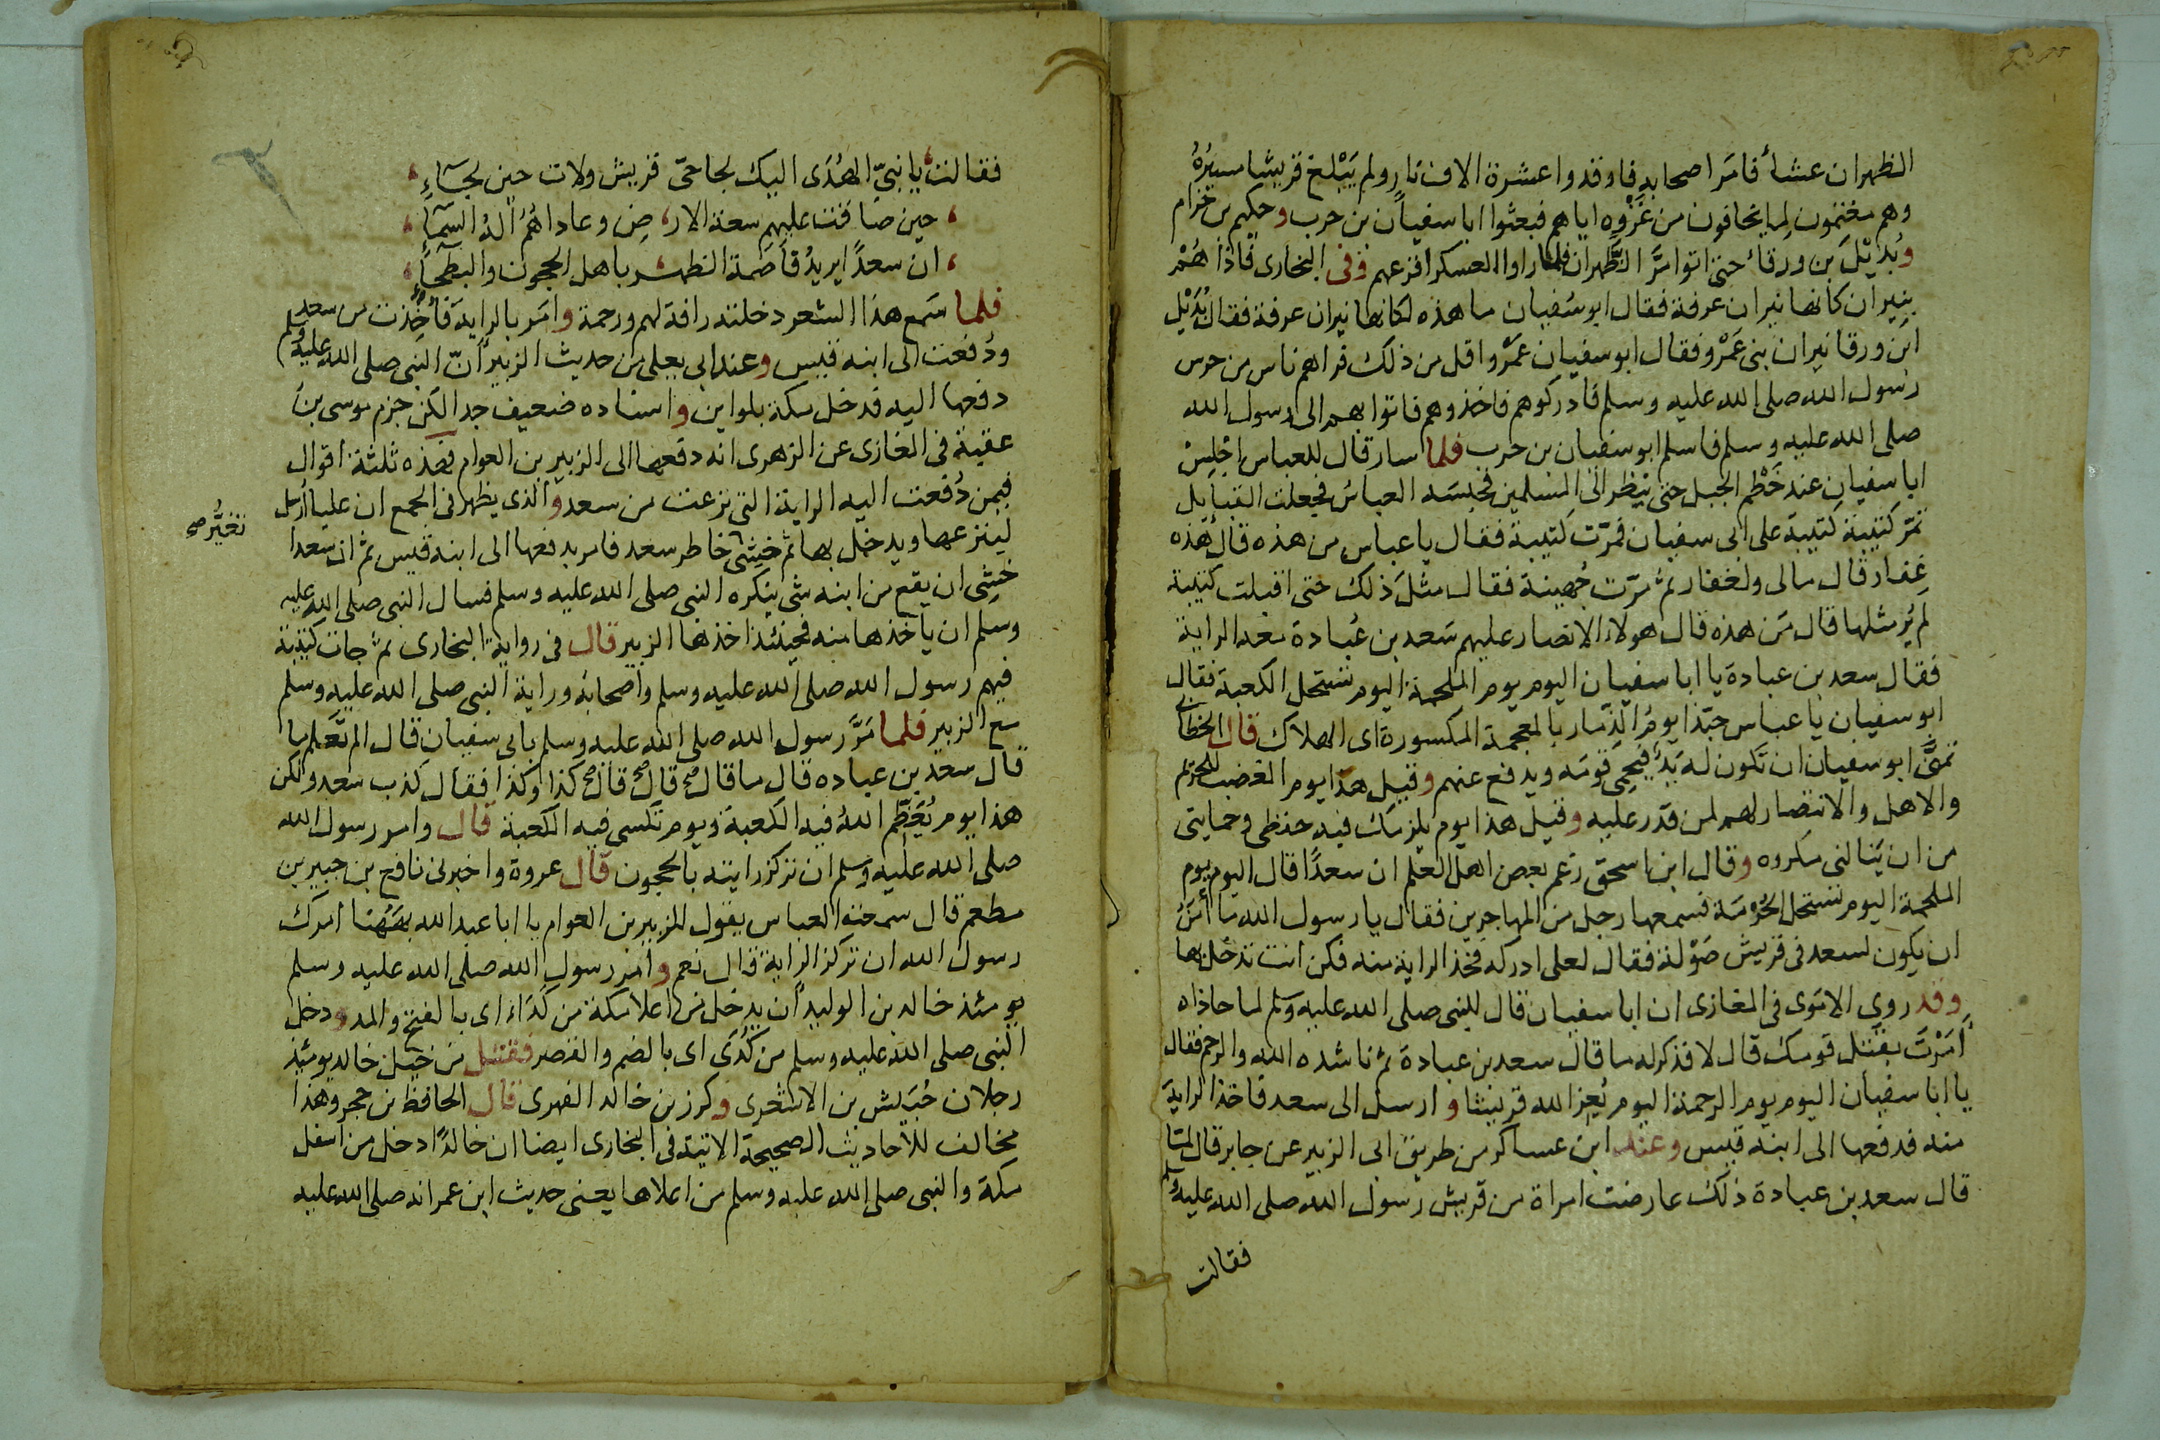 الظهران عشاء فامر اصحابه فاوقدوا عشرة الاف نار ولم يبلغ قريشا مسيره
وهم مغتمون لما يخافون من غزوه اياهم فبعثوا ابا سفيان بن حرب وحكيم بن حزام
وبديل بن ورقاء حتى اتوا مر الظهران فلما راوا العسكر افزعهم وفى البخارى فاذا هم
بنيران كانها نيران عرفة فقال ابو سفيان ما هذه لكانها نيران عرفة فقال بديل
ابن ورقا نيران بنى عمرو فقال ابو سفيان عمرو اقل من ذلك فراهم ناس من حرس
رسول الله صلى الله عليه وسلم فادركوهم فاخذوهم فاتوا بهم الى رسول الله
صلى الله عليه وسلم فاسلم ابو سفيان بن حرب فلما سار قال للعباس اجلس
ابا سفيان عند خطم الجبل حتى ينظر الى المسلمين فجلسه العباس فجعلت القبايل
تمر كتيبة كتيبة على ابى سفيان فمرت كتيبة فقال يا عباس من هذه قال هذه
غفار قال مالى ولغفار ثم مرت جهينة فقال مثل ذلك حتى اقبلت كتيبة
لم ير مثلها قال من هذه قال هولاء الانصار عليهم سعد بن عبادة معه الراية
فقال سعد بن عبادة يا ابا سفيان اليوم يوم الملحمة اليوم تستحل الكعبة فقال
ابو سفيان يا عباس حبذا يوم الذمار بالمعجمة المكسورة اى الهلاك قال الخطابى
تمنى ابو سفيان ان تكون له يد فيحمى قومه ويدفع عنهم وقيل هذا يوم الغضب للحريم
والاهل والانتصار لهم لمن قدر عليه وقيل هذا يوم يلزمك فيه حفظى وحمايتى
من ان ينالنى مكروه وقال ابن اسحق زعم بعض اهل العلم ان سعدا قال اليوم يوم
الملحمة اليوم تستحل الحرمة فسمعها رجل من المهاجرين فقال يا رسول الله ما أمن
ان يكون لسعد فى قريش صولة فقال لعلى ادركه فخذ الراية منه فكن انت تدخل بها
وقد روى الاموى فى المغازى ان ابا سفيان قال للنبى صلى الله عليه وسلم لما حاذاه
أمرت بقتل قومك قال لا فذكر له ما قال سعد بن عبادة ثم ناشده الله والرحم فقال
يا ابا سفيان اليوم يوم الرحمة اليوم يعز الله قريشا وارسل الى سعد فاخذ الراية
منه فدفعها الى ابنه قيس وعند ابن عساكر من طريق ابى الزبير عن جابر قال لما
قال سعد بن عبادة ذلك عارضت امراة من قريش رسول الله صلى الله عليه وسلم
فقالت
فقالت، يا نبى الهدى اليك لجا حى قريش ولات حين لجاء،
، حين ضاقت عليهم سعة الار، ض وعاداهم اله السماء،
، ان سعدا يريد قاصمة الظهر، باهل الحجون والبطحاء،
فلما سمع هذا الشعر دخلته رافة لهم ورحمة وامر بالراية فأخذت من سعد
ودفعت الى ابنه قيس وعند ابى يعلى من حديث الزبير ان النبى صلى الله عليه وسلم
دفعها اليه فدخل مكة بلواين واسناده ضعيف جدا لكن جزم موسى بن
عقبة فى المغازى عن الزهرى انه دفعها الى الزبير بن العوام فهذه ثلثة اقوال
فيمن دفعت اليه الراية التى نزعت من سعد والذى يظهر فى الجمع ان عليا أرسل
لينزعها ويدخل بها ثم خشى خاطر سعد فامر بدفعها الى ابنه قيس ثم ان سعدا
تغير صح
خشى ان يقع من ابنه شى ينكره النبى صلى الله عليه وسلم فسال النبى صلى الله عليه
وسلم ان يأخذها منه فحينئذ اخذها الزبير قال فى رواية البخارى ثم جات كتيبة
فيهم رسول الله صلى الله عليه وسلم واصحابه وراية النبى صلى الله عليه وسلم
مع الزبير فلما مر رسول الله صلى الله عليه وسلم بابى سفيان قال الم تعلم ما
قال سعد بن عباده قال ما قال قال قال كذا وكذا فقال كذب سعد ولكن
هذا يوم يعظم الله فيه الكعبة ويوم تكسى فيه الكعبة قال وامر رسول الله
صلى الله عليه وسلم ان تركز رايته بالحجون قال عروة واخبرنى نافع بن جبير بن
مطعم قال سمعت العباس يقول للزبير بن العوام يا ابا عبد الله ههنا امرك
رسول الله ان تركز الراية قال نعم وامر رسول الله صلى الله عليه وسلم
يومئذ خالد بن الوليد ان يدخل من اعلا مكة من كداء اى بالفتح والمد ودخل
النبى صلى الله عليه وسلم من كدى اى بالضم والقصر فقتل من خيل خالد يومئذ
رجلان حبيش بن الاشعرى وكرز بن خالد الفهرى قال الحافظ بن حجر وهذا
مخالف للأحاديث الصحيحة الاتية فى البخارى ايضا ان خالدا دخل من اسفل
مكة والنبى صلى الله عليه وسلم من اعلاها يعنى حديث ابن عمر انه صلى الله عليه